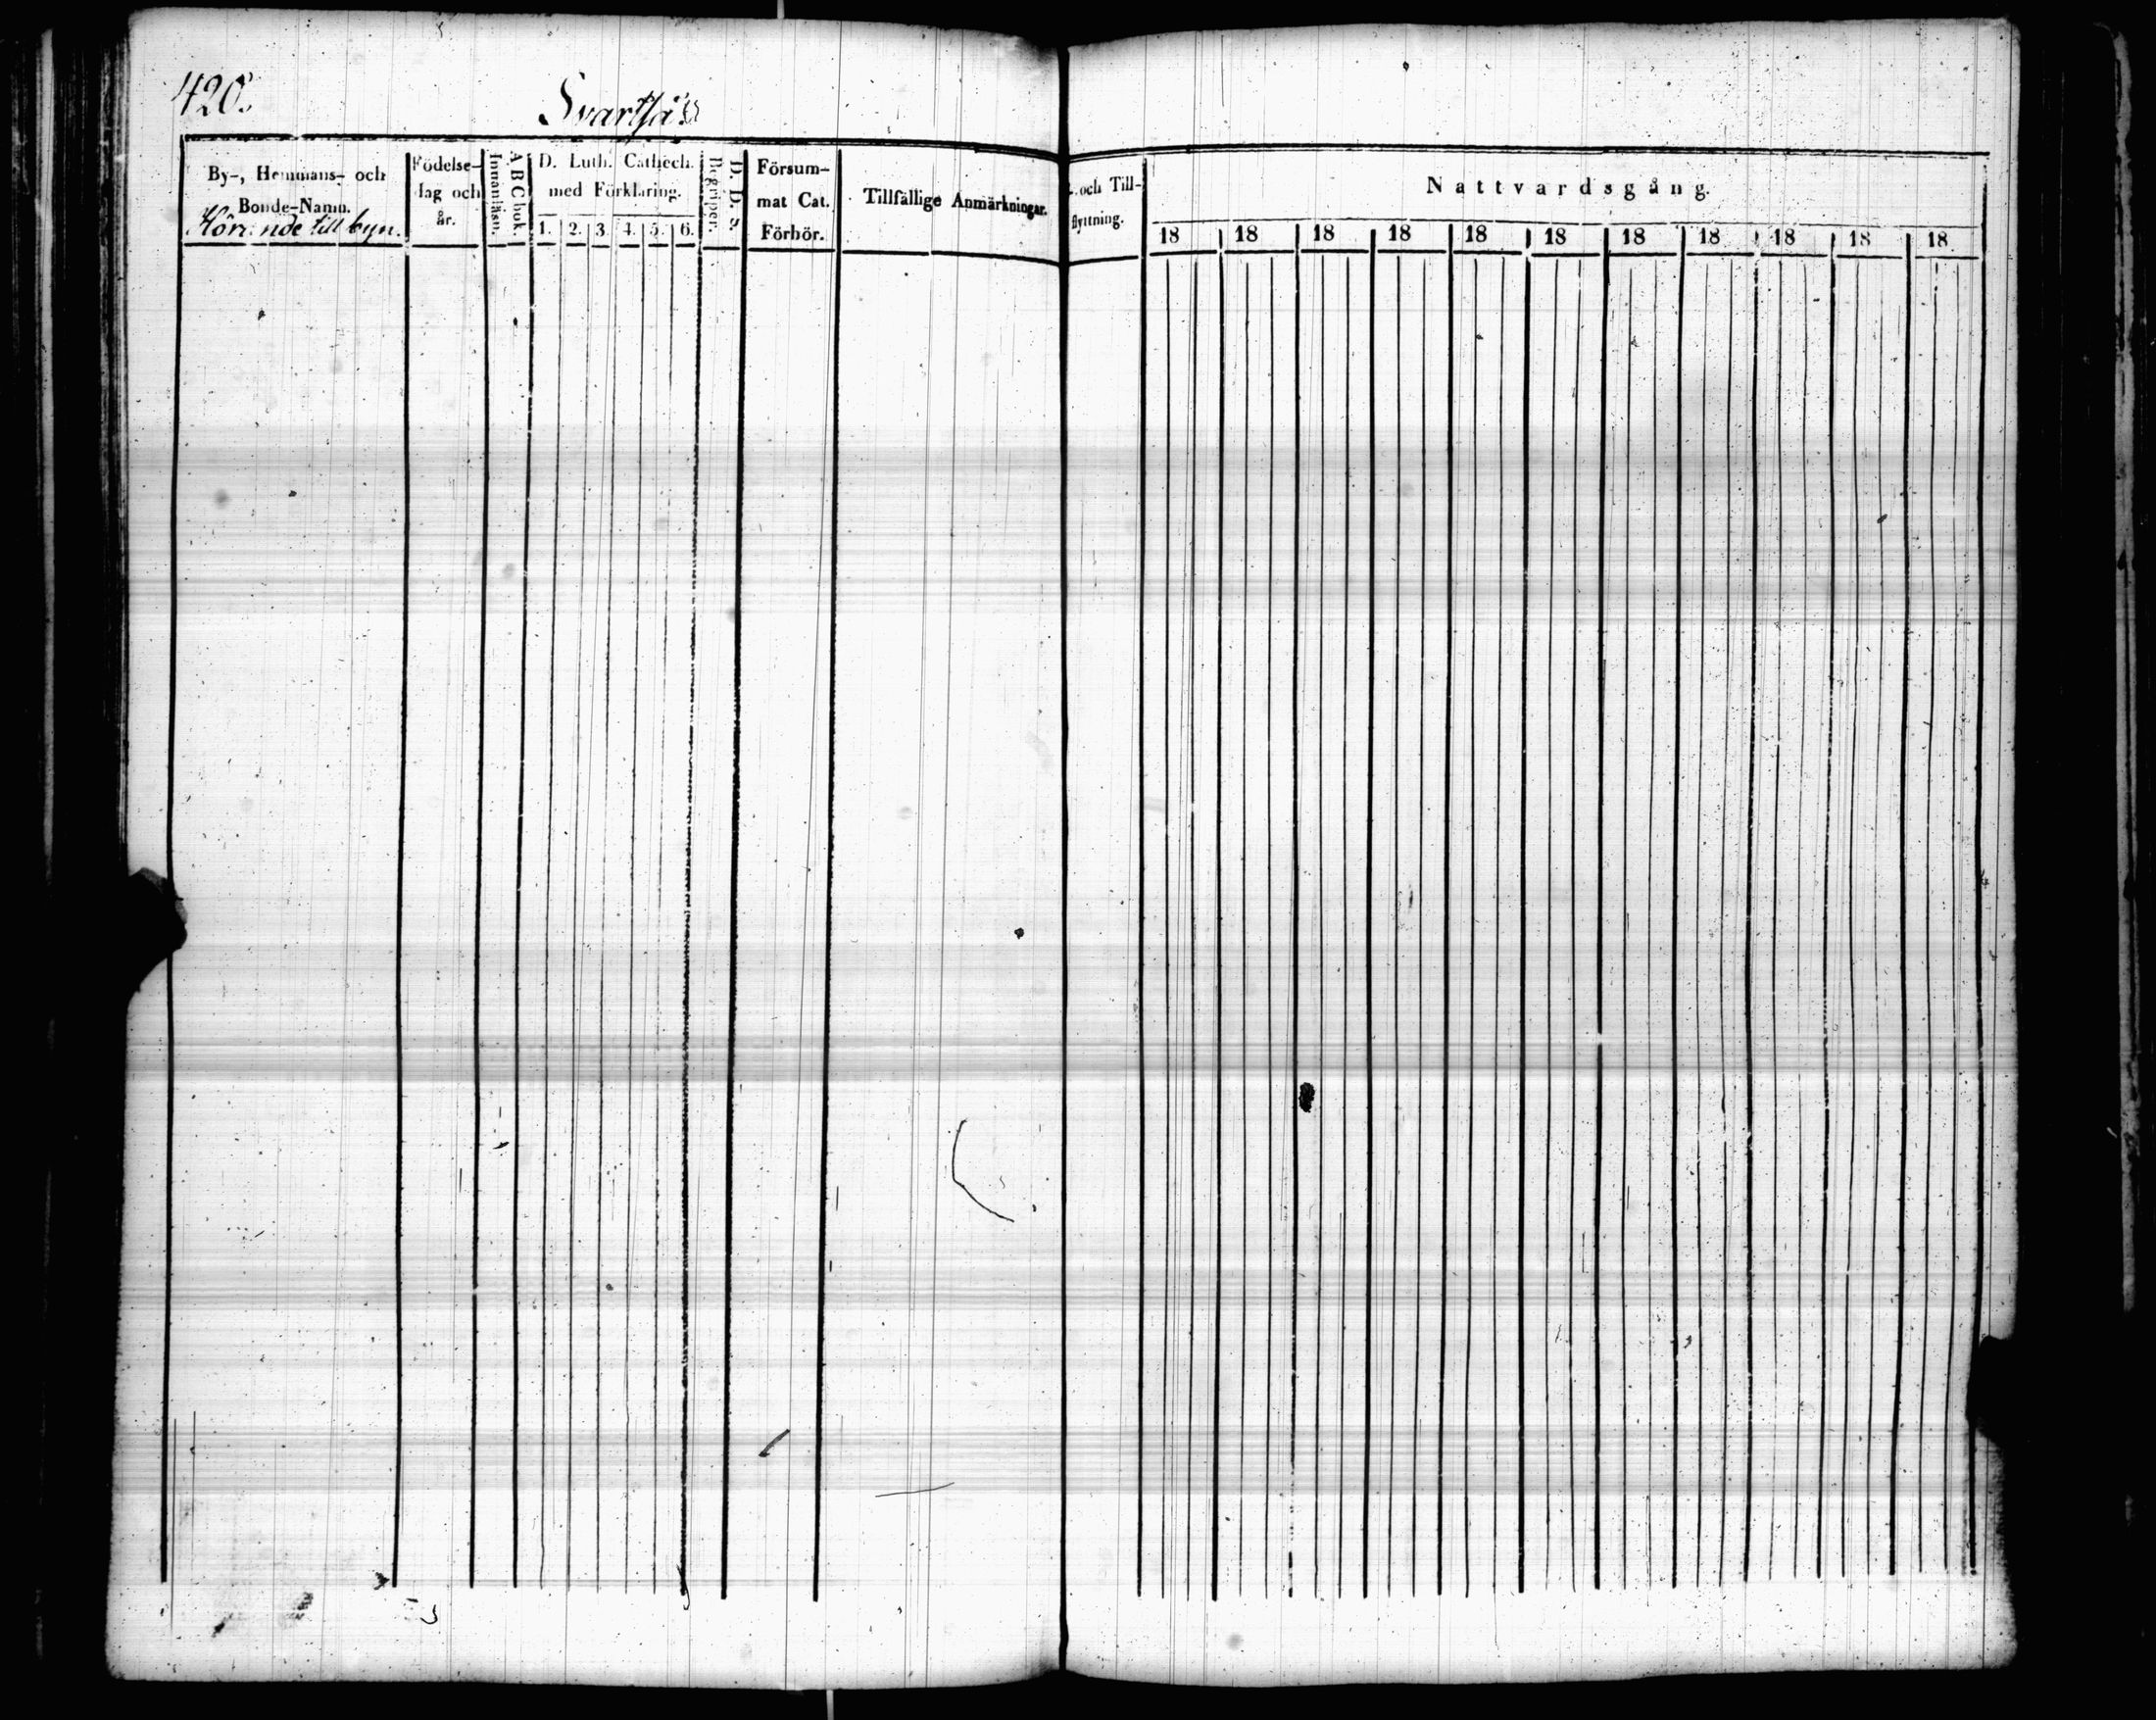 420.
Svartså
By-, Hemmans- och
Bonde-Namn.
Hörande till byn.
Födelse-
dag och
år.
Innanläsn.
A B C bok.
D. Luth. Cathech.
med Förklaring.
1. 2. 3. 4. 5. 6.
Begriper.
D. D. S.
Försum-
mat Cat.
Förhör.
Tillfällige Anmärkningar.
och Till-
flyttning.
Nattvardsgång.
18 18 18 18 18 18 18 18 18 18 18